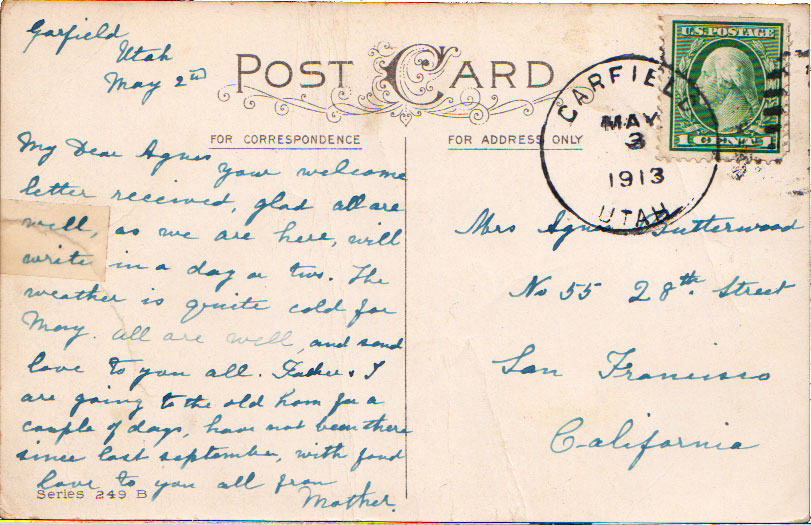 Garfield
Utah
May 2nd
POST CARD
FOR CORRESPONDENCE
FOR ADDRESS ONLY
My Dear Agnes your welcome
letter received, glad all are
well, as we are here, will
write in a day or two. The
weather is quite cold for
May. all are well, and send
love to you all. Father & I
are going to the old hom for a
couple of days, have not been there
since last september, with fond
love to you all from
Mother.
Series 249 B
U.S. POSTAGE
1 CENT 1
GARFIELD
MAY
3
1913
UTAH
Mrs Agnes Sutterwood
No 55 28th Street
San Francisco
California